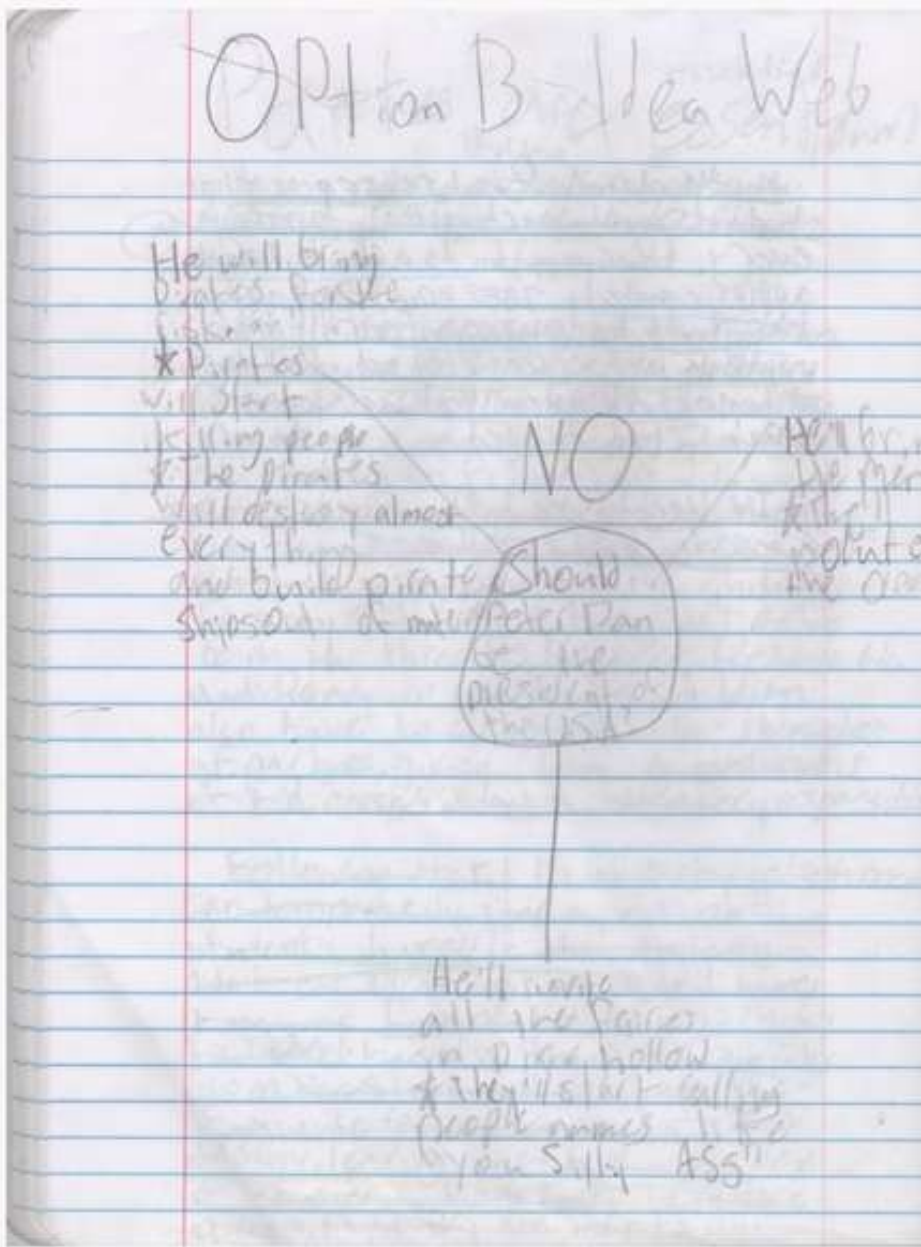 OPtion B - Idea Web
He will bring
pirates for the
* Pirates
will start
killing people
* The pirates
will destroy almost
everything
and build pirate
ships out of
NO
Should
Peter Pan
be the
president of
the USA?
He'll br
the mer
* They'll
the oce
He'll invite
all the fairies
in pixie hollow
* They'll start calling
people names like
"you Silly ASS"